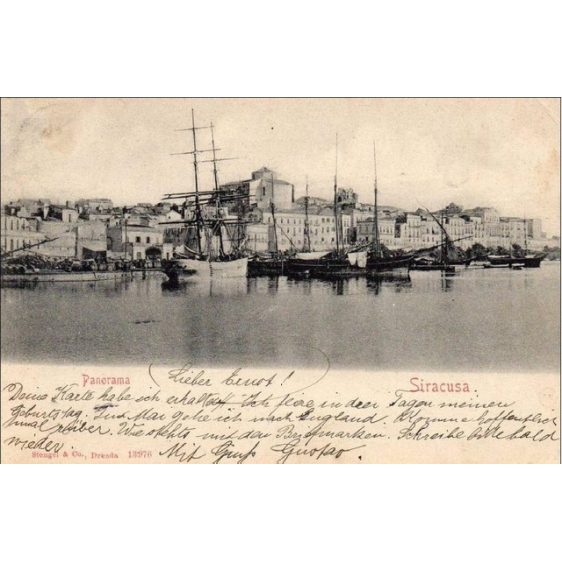 Panorama
(Lieber Ernst!)
Siracusa.
Deine Karte habe ich erhalten. Ich feiere in den Tagen meinen
Geburtstag. Im Mai gehe ich nach England. Komme hoffentlich
mal rüber. Wie stehts mit den Briefmarken. Schreibe bitte bald
wieder. Mit Gruß Gustav.
Stengel & Co., Dresda 13976